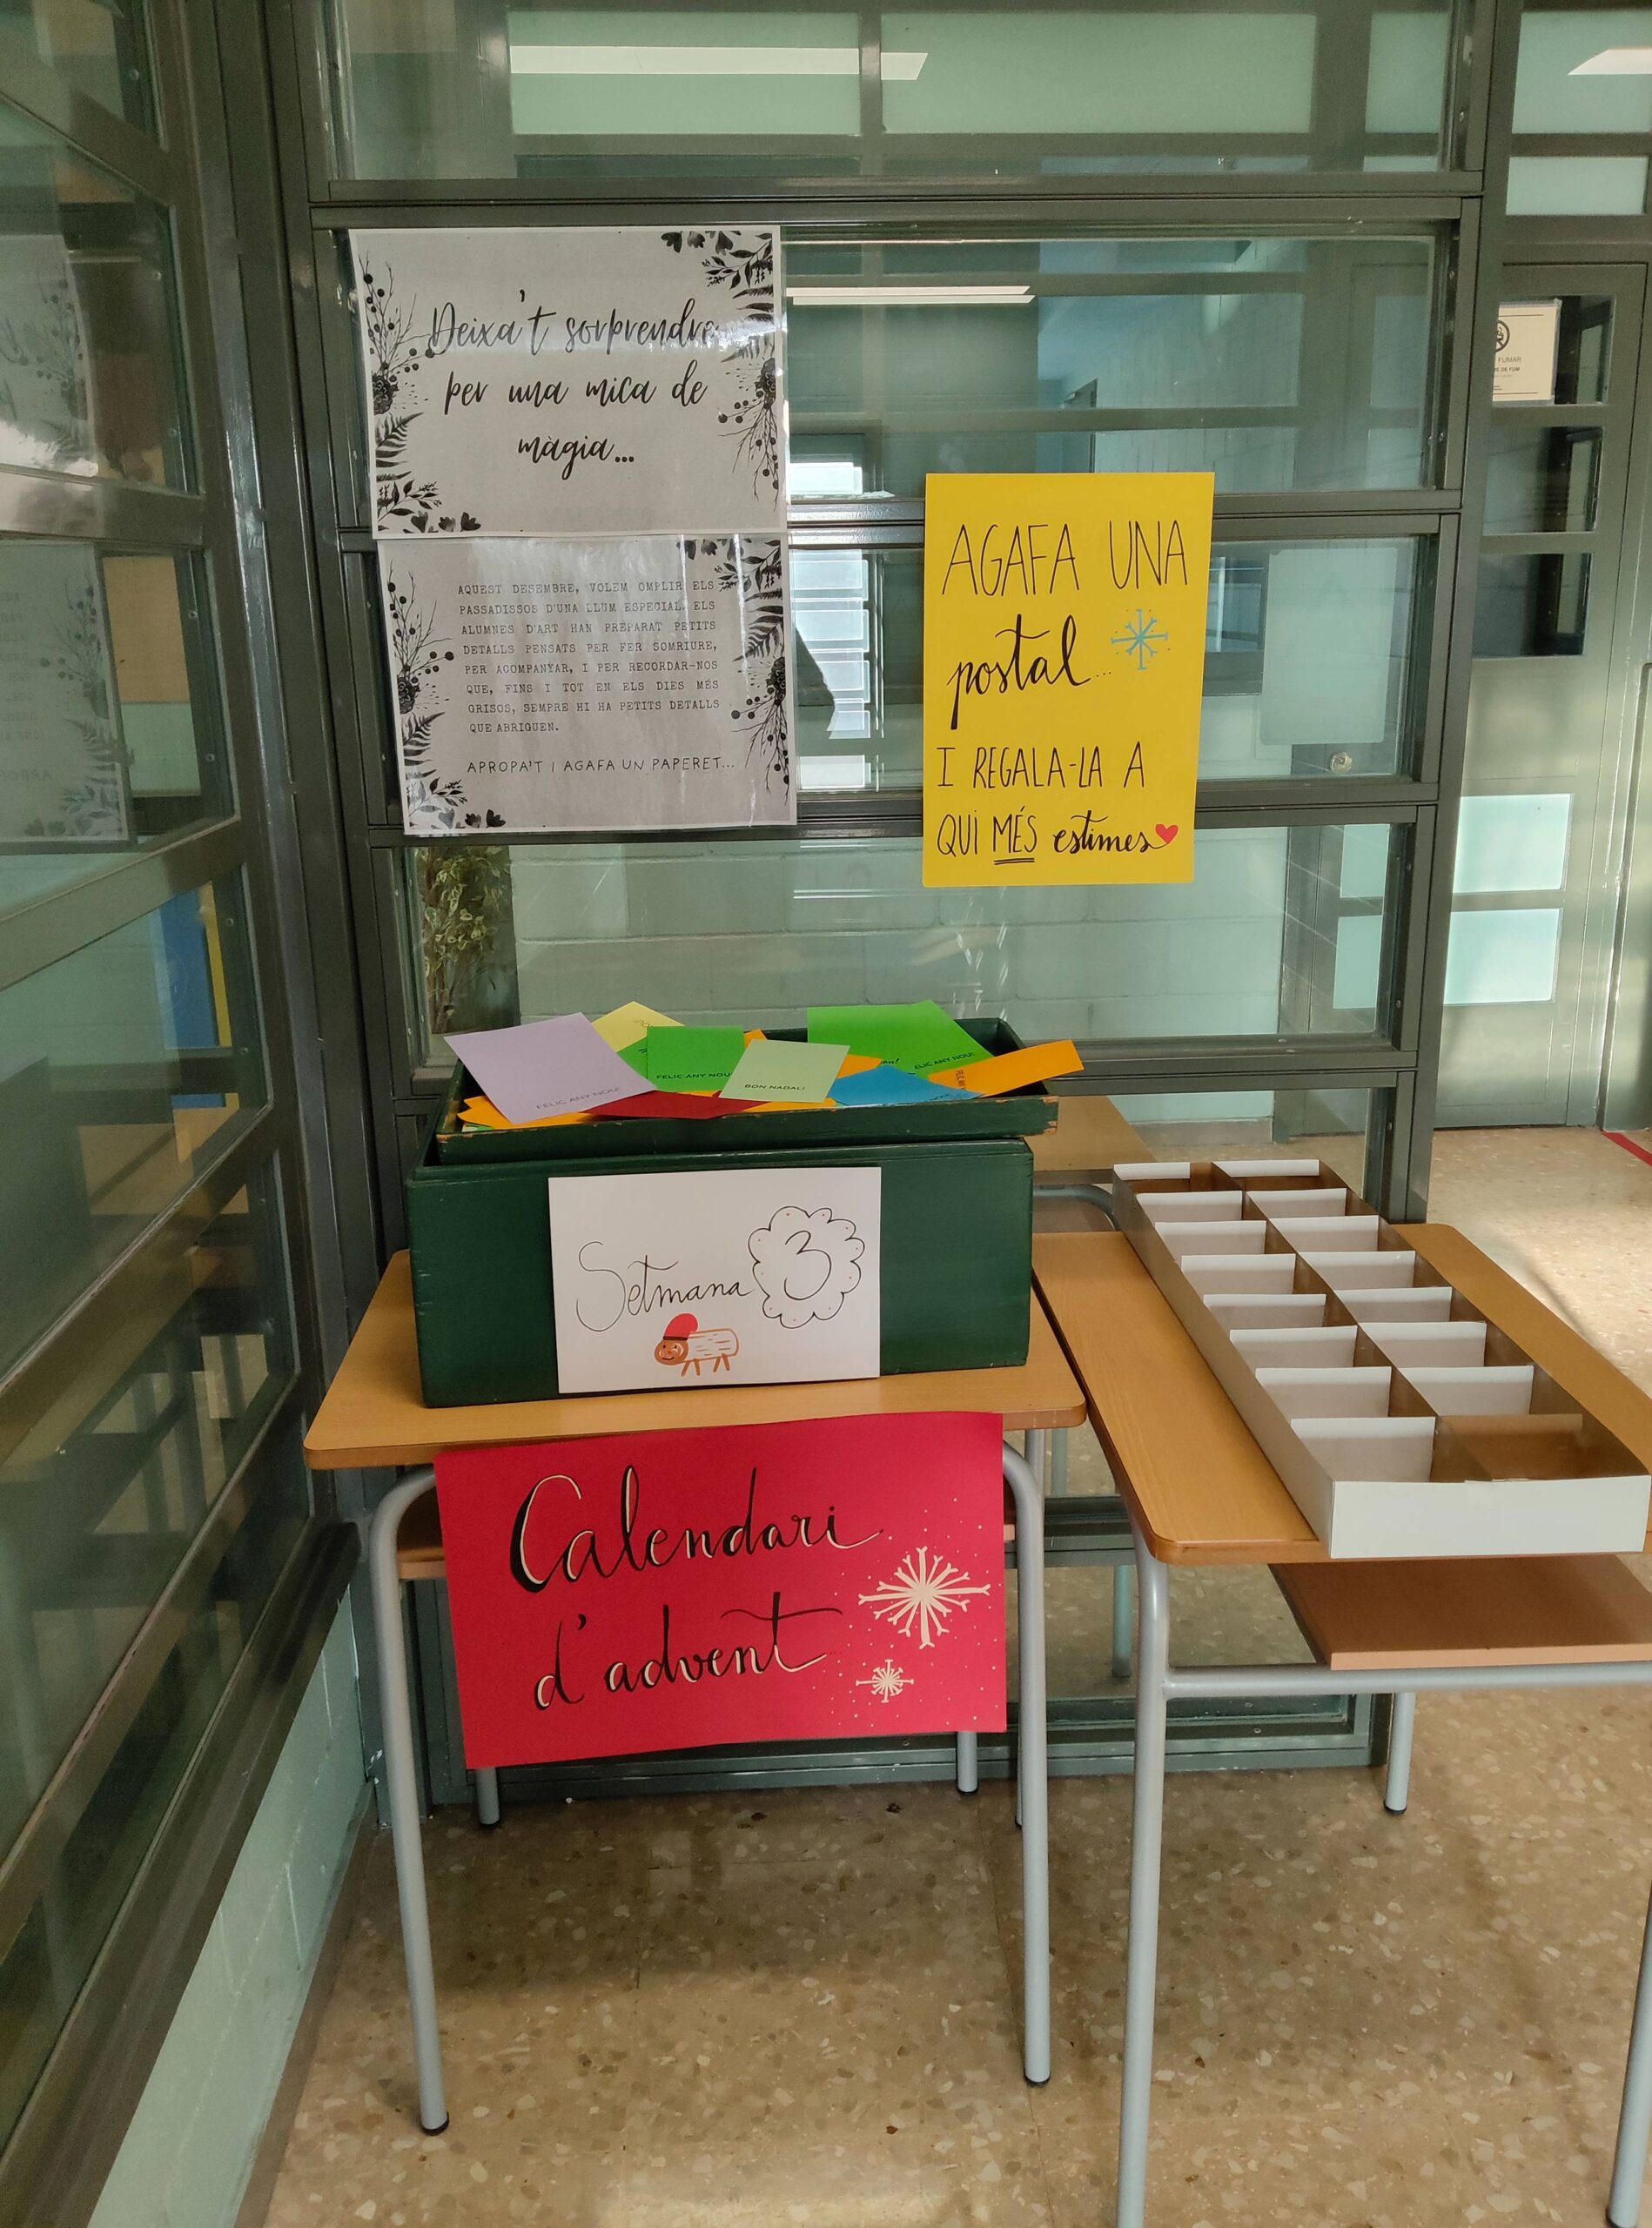 Deixa't sorprendre
per una mica de
màgia...
AQUEST DESEMBRE, VOLEM OMPLIR ELS
PASSADISSOS D'UNA LLUM ESPECIAL. ELS
ALUMNES D'ART HAN PREPARAT PETITS
DETALLS PENSATS PER FER SOMRIURE,
PER ACOMPANYAR, I PER RECORDAR-NOS
QUE, FINS I TOT EN ELS DIES MÉS
GRISOS, SEMPRE HI HA PETITS DETALLS
QUE ABRIGUEN.
APROPA'T I AGAFA UN PAPERET...
AGAFA UNA
postal...
I REGALA-LA A
QUI MÉS estimes
FUMAR
DE FUM
FELIÇ ANY NOU!
FELIÇ ANY NOU!
BON NADAL!
FELIÇ ANY NOU!
Setmana 3
Calendari
d'advent